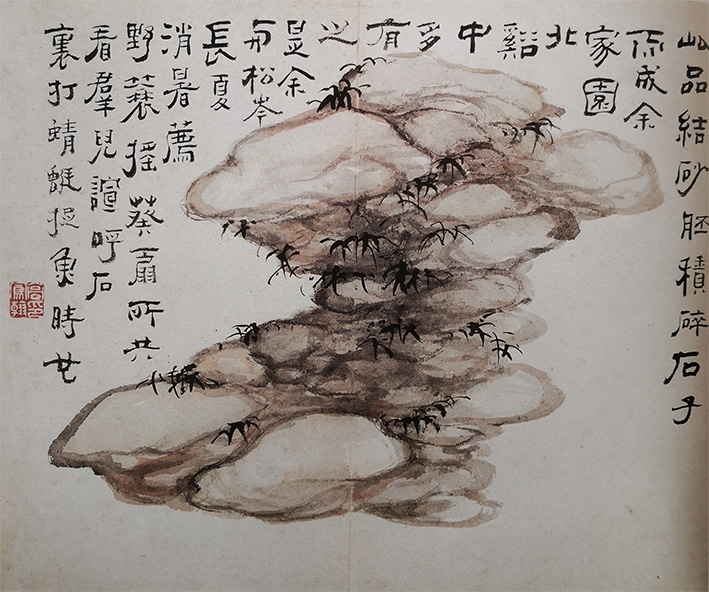 此品結砂胚積碎石子
而成余
家園
北
谿
中
多
有
之
是余
与松岑
長夏
消暑薦
野搖葵扇所共
看羣兒諠呼石
裏打蜻蜓捉魚時也
高印
鳳翰